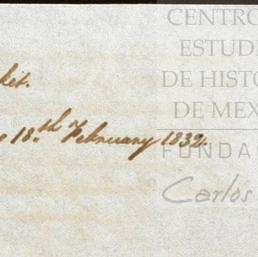 CENTRO
ESTUDI
DE HISTO
DE MEX
FUNDA
Carlos
ket.
10th February 1832.